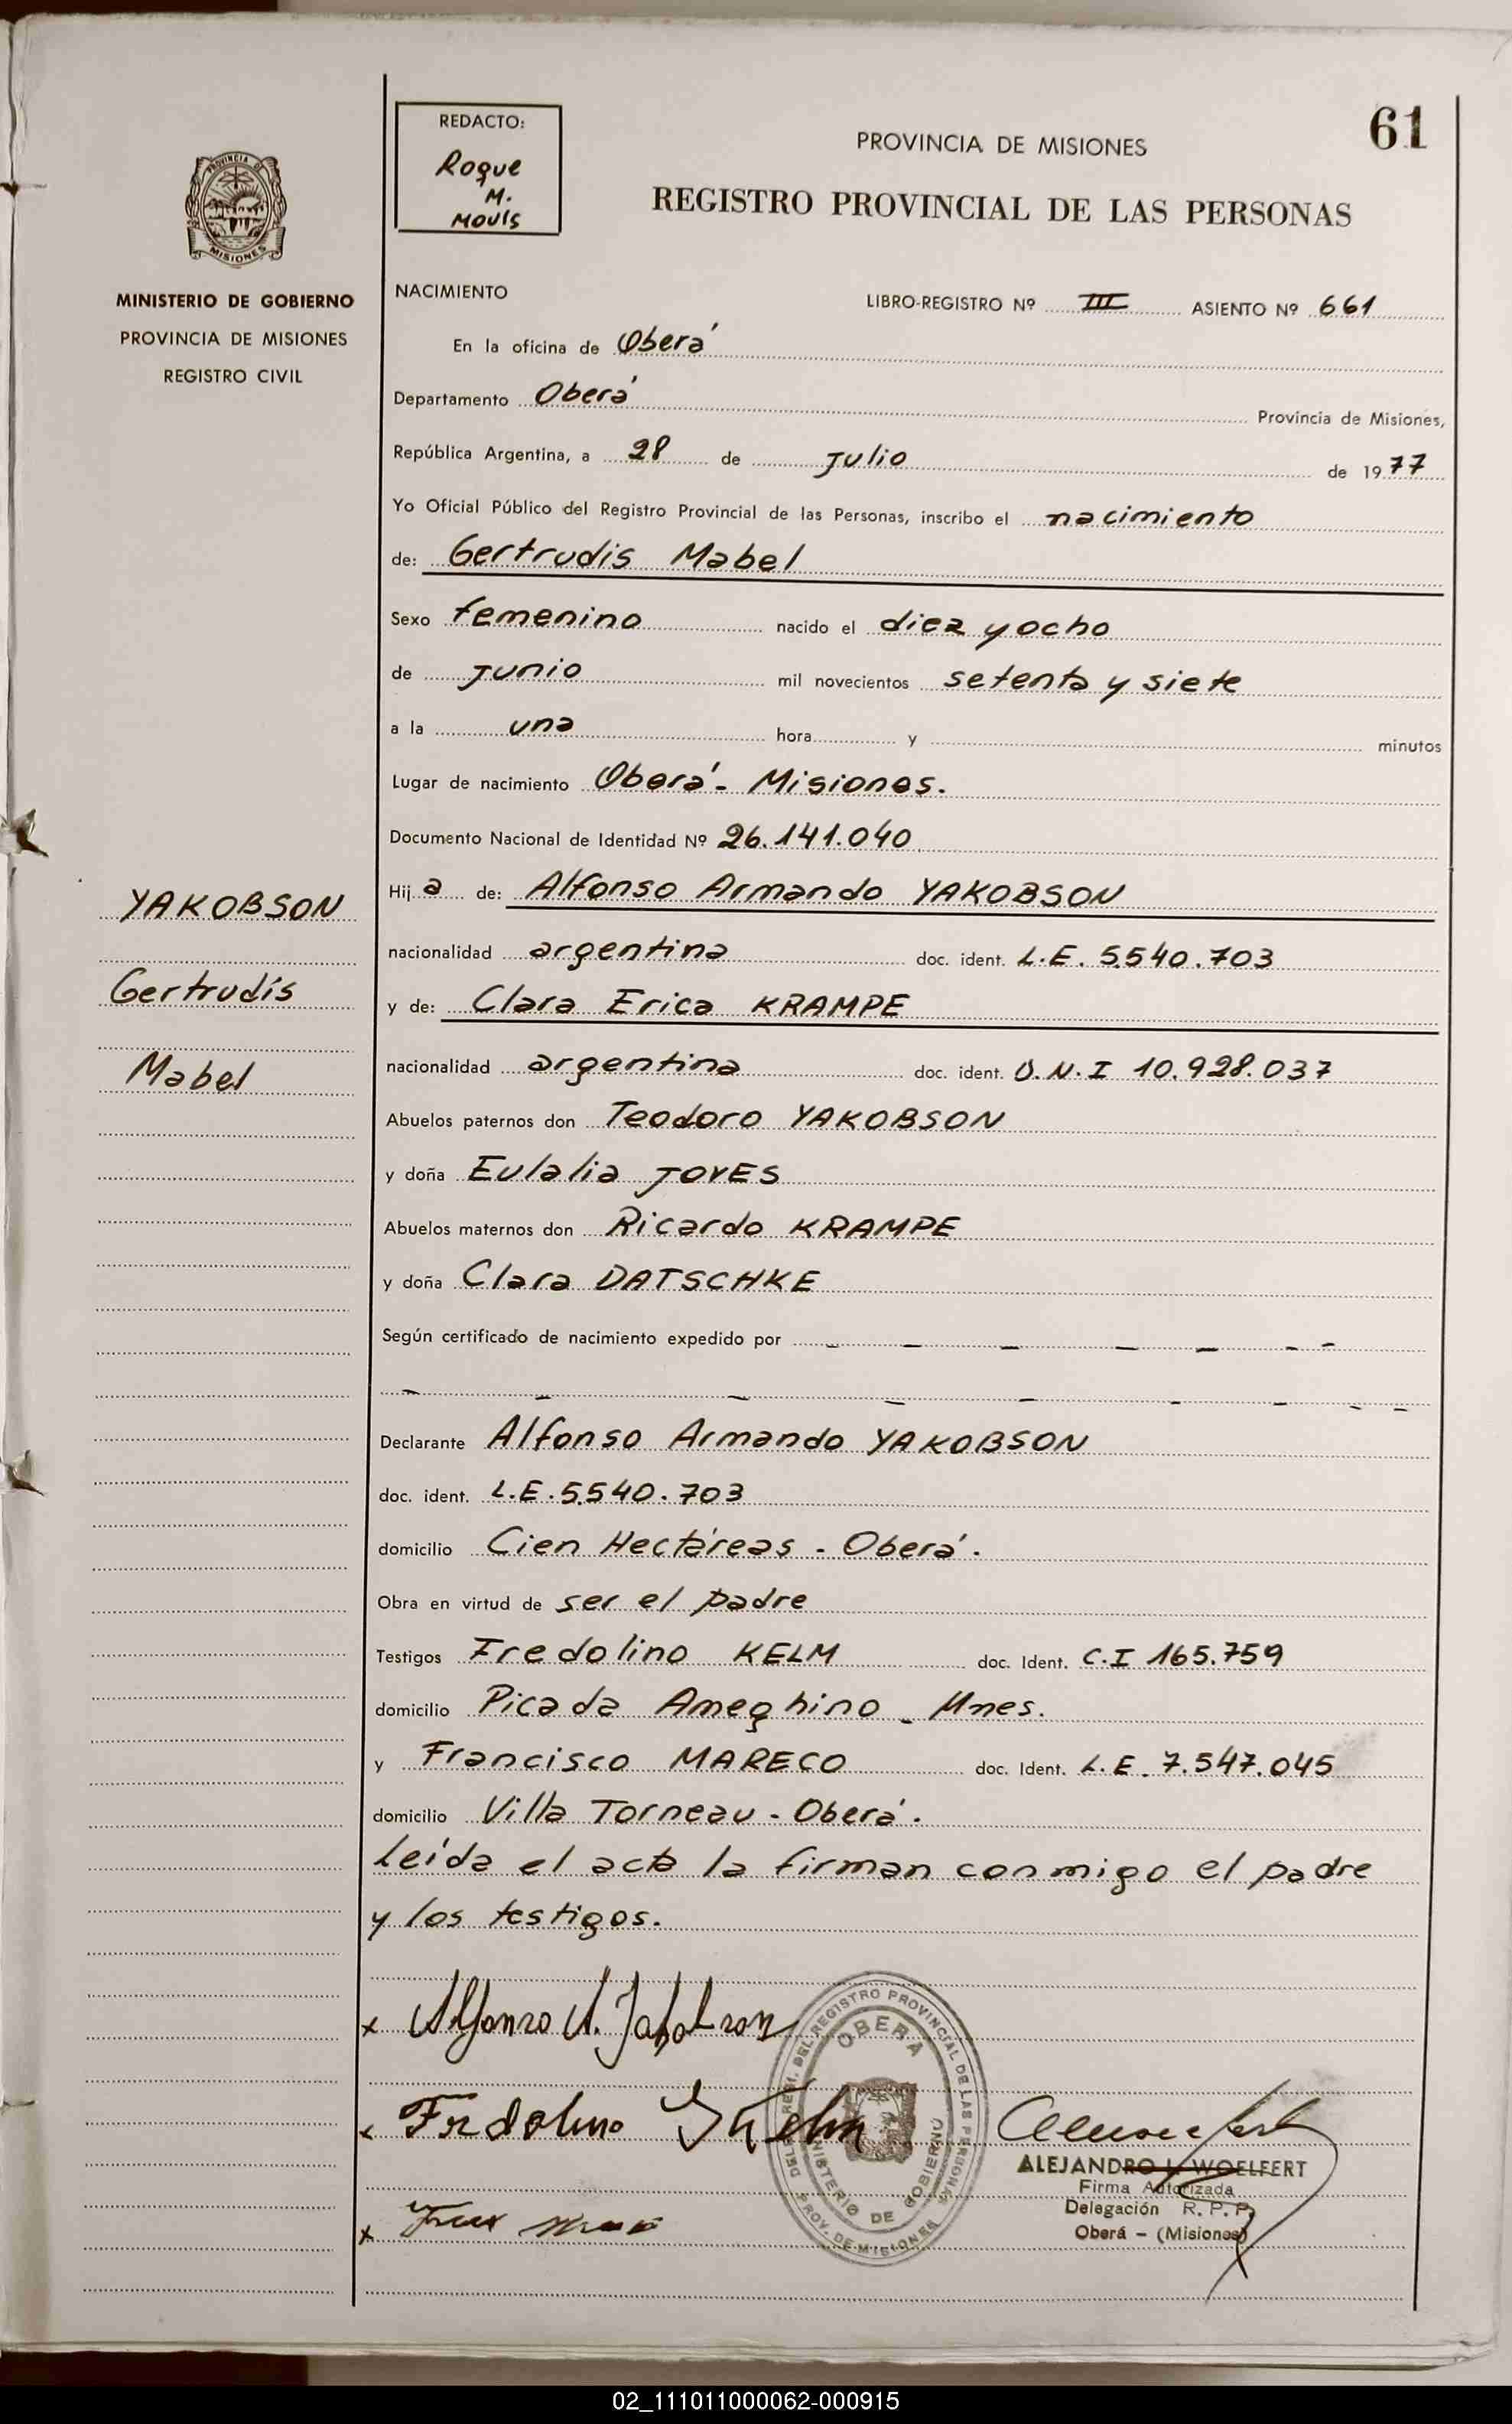 61
REDACTO:
Roque
M.
MOVIS
PROVINCIA DE MISIONES
REGISTRO PROVINCIAL DE LAS PERSONAS
PROVINCIA DE
MISIONES
MINISTERIO DE GOBIERNO
PROVINCIA DE MISIONES
REGISTRO CIVIL
NACIMIENTO
LIBRO-REGISTRO Nº III ASIENTO Nº 661
En la oficina de Oberá
Departamento Oberá Provincia de Misiones,
República Argentina, a 28 de Julio de 1977
Yo Oficial Público del Registro Provincial de las Personas, inscribo el nacimiento
de: Gertrudis Mabel
Sexo femenino nacido el diez y ocho
de Junio mil novecientos setenta y siete
a la una hora y minutos
Lugar de nacimiento Oberá - Misiones.
Documento Nacional de Identidad Nº 26.141.040
YAKOBSON
Gertrudis
Mabel
Hij a de: Alfonso Armando YAKOBSON
nacionalidad argentina doc. ident. L.E. 5.540.703
y de: Clara Erica KRAMPE
nacionalidad argentina doc. ident. D.N.I 10.928.037
Abuelos paternos don Teodoro YAKOBSON
y doña Eulalia JOVES
Abuelos maternos don Ricardo KRAMPE
y doña Clara DATSCHKE
Según certificado de nacimiento expedido por
Declarante Alfonso Armando YAKOBSON
doc. ident. L.E. 5.540.703
domicilio Cien Hectáreas - Oberá.
Obra en virtud de ser el padre
Testigos Fredolino KELM doc. Ident. C.I 165.759
domicilio Picada Ameghino - Mnes.
y Francisco MARECO doc. Ident. L.E. 7.547.045
domicilio Villa Torneau - Oberá.
Leída el acta la firman conmigo el padre
y los testigos.
x Alfonzo A. Jakobson
x Fredolino Kelm
x
REGISTRO PROVINCIAL DE LAS PERSONAS
OBERA
MINISTERIO DE GOBIERNO
PROV. DE MISIONES
ALEJANDRO L. WOELFERT
Firma Autorizada
Delegación R.P.P.
Oberá - (Misiones)
02_111011000062-000915